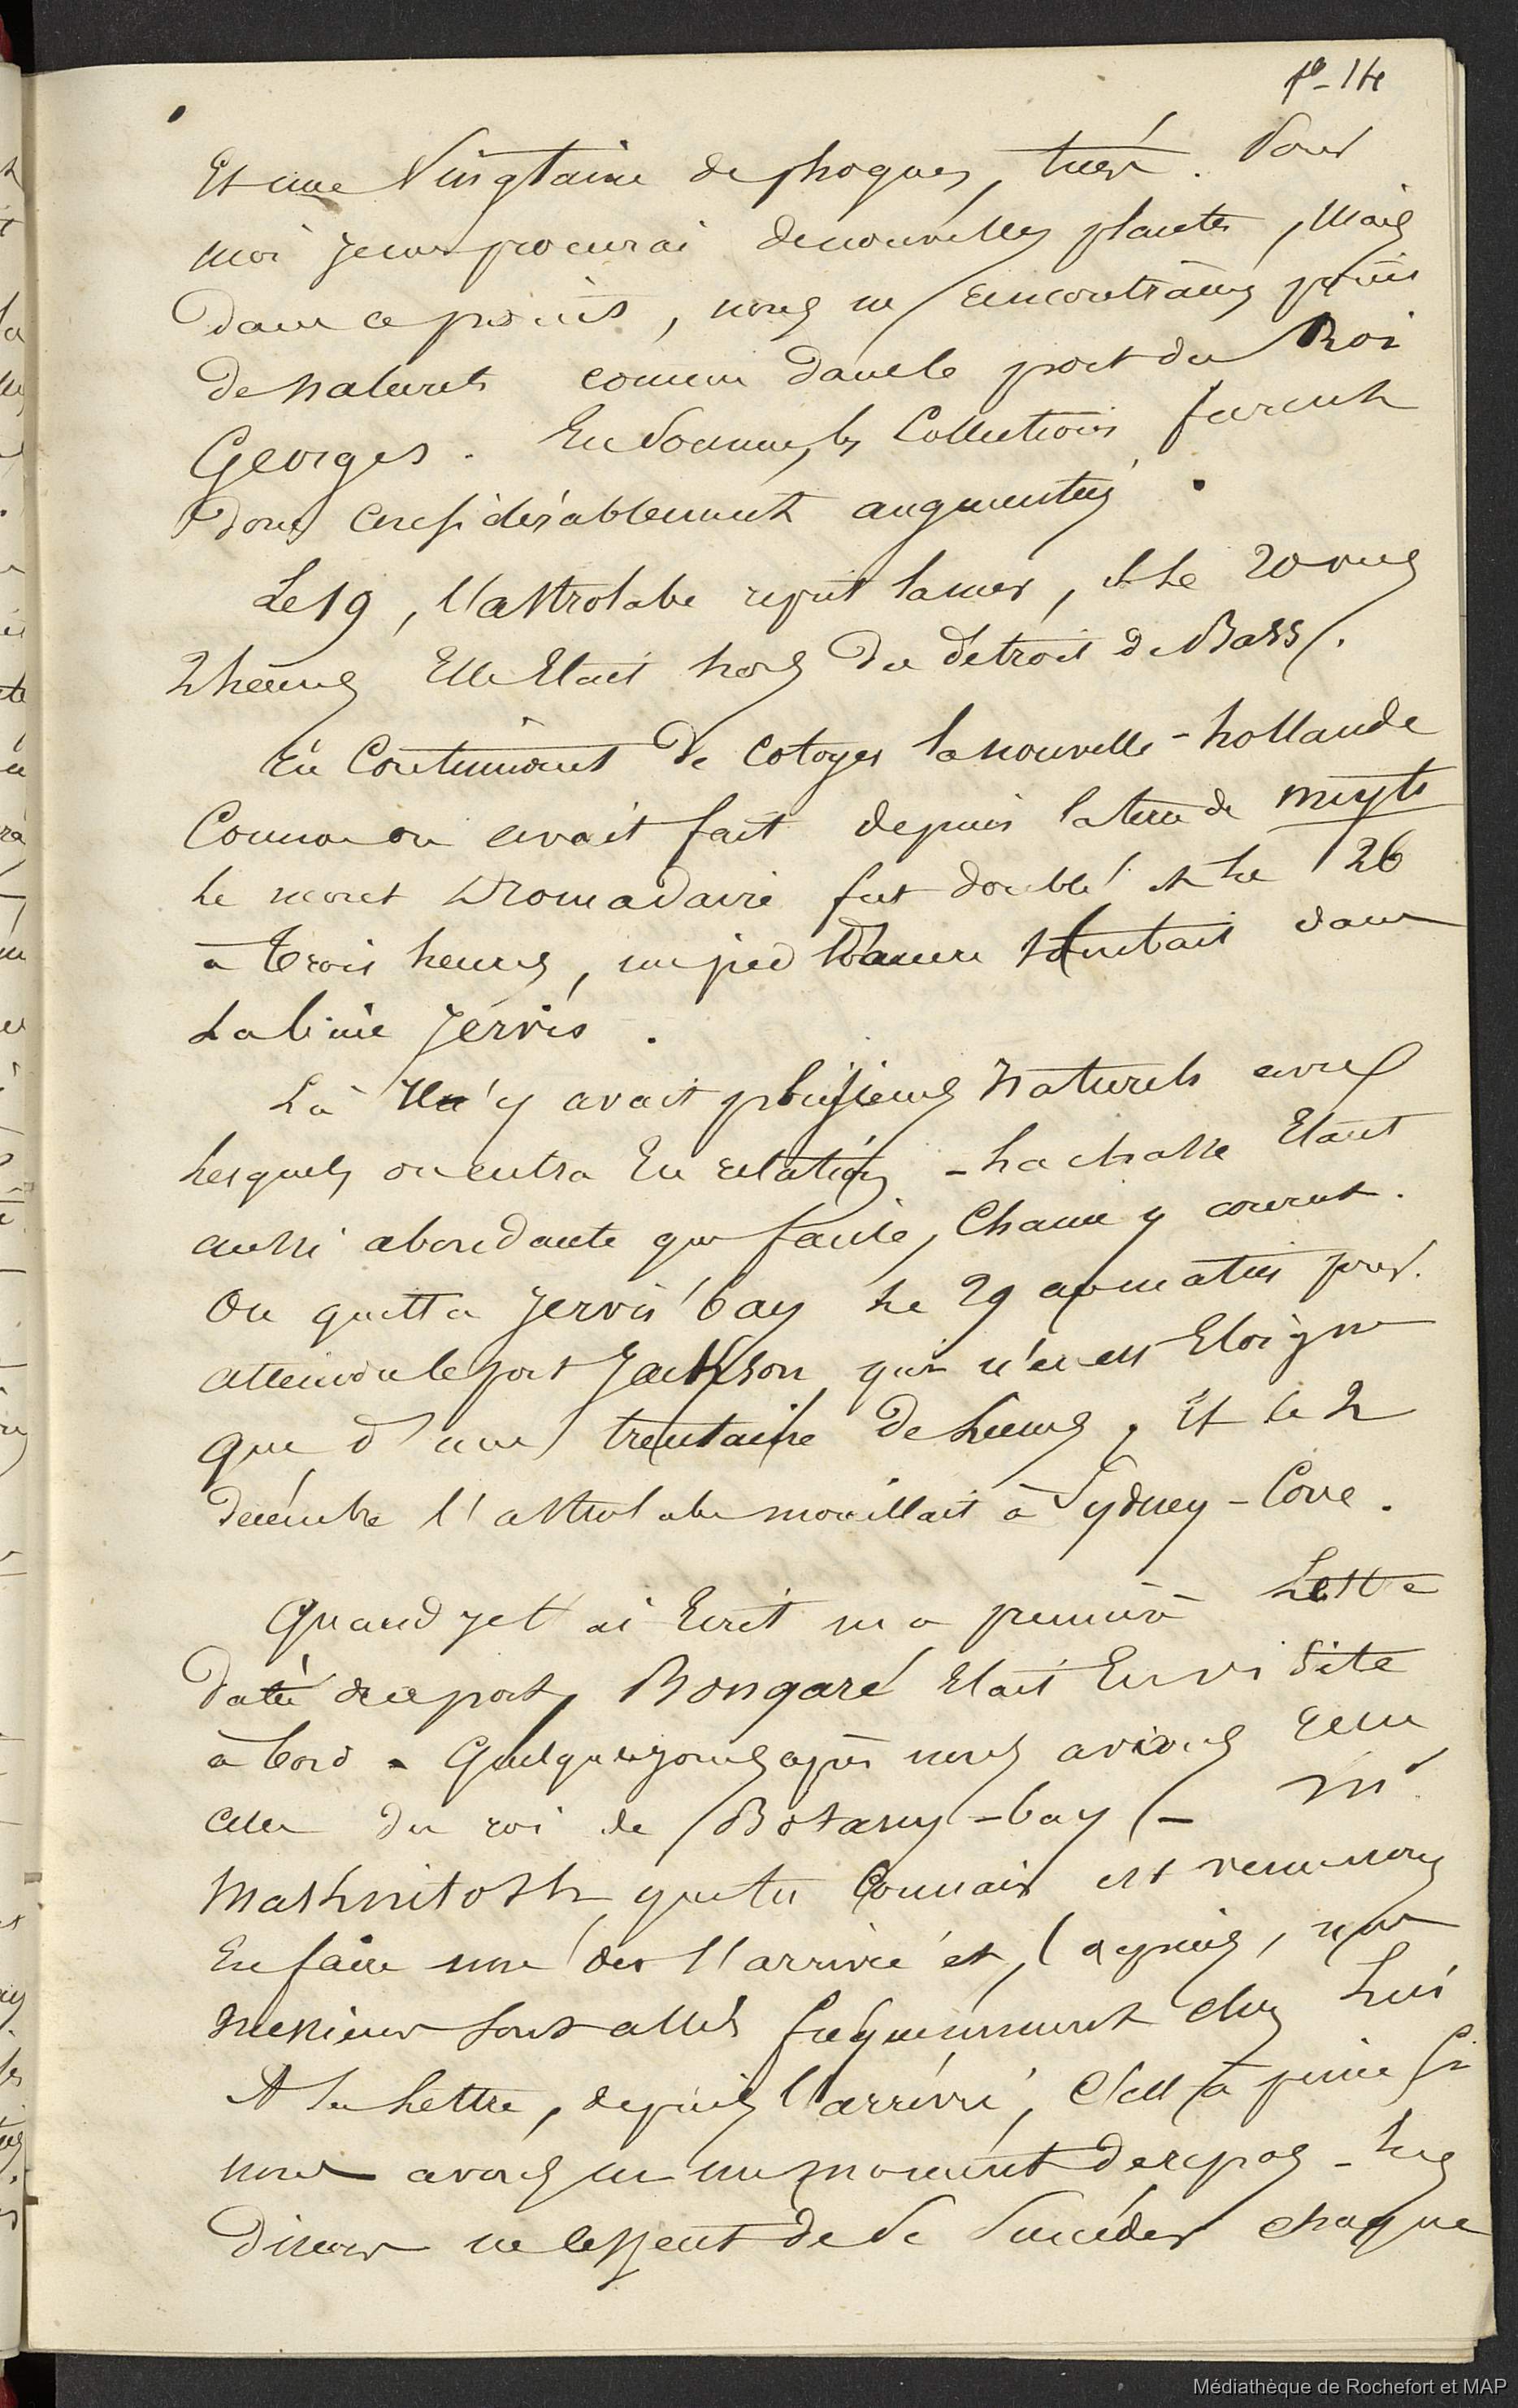 f°_14
Et une vingtaine de phoques, tués. Pour
moi je me procurai de nouvelles plantes, Mais
Dans ce pres, nous ne rencontrâmes point
De naturels comme dans le port du Roi
Georges. En Somme, les Collections furent
Donc considérablement augmentées.
Le 19, l'astrolabe reprit la mer, et le 20 vers
2 heures Elle Etait hors Du détroit de Bass.
En Continuant De Cotoyer la nouvelle-hollande
Comme on avait fait depuis la terre de nuyts
Le mont Dromadaire fut doublé et Le 26
à trois heures, un pied d'ancre tombait dans
La baie Jervis.
Là Il y avait plusieurs Naturels avec
Lesquels on entra En relation - La chasse Etant
aussi abondante que facile, Chacun y courut.
On quitta Jervis'bay Le 29 au matin pour
atteindre le port Jackson, qui n'en est Eloigné
que d'une trentaine De Lieues, Et le 2
décembre l'astrolabe mouillait à Sydney-Cove.
Quand je t'ai Ecrit ma première Lettre
Datée de ce port, Bongaré Etait En visite
à bord. Quelques jours après nous avions reçu
celle du roi de Botany-bay - Mr
Mashnitosh que tu Connais est venu nous
En faire une dès l'arrivée et, depuis, nos
Messieurs sont allés fréquemment chez Lui
A la Lettre, depuis l'arrivée, C'est à peine Si
nous avons eu un moment de repos - Les
Diners ne cessent de Se Succéder chaque
Médiathèque de Rochefort et MAP